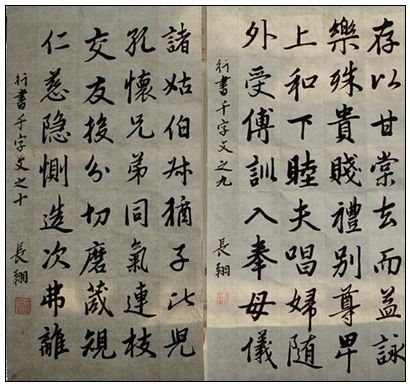 存以甘棠去而益詠
樂殊貴賤禮別尊卑
上和下睦夫唱婦隨
外受傅訓入奉母儀
行書千字文之九 長翔
諸姑伯叔猶子比兒
孔懷兄弟同氣連枝
交友投分切磨箴規
仁慈隐惻造次弗離
行書千字文之十 長翔